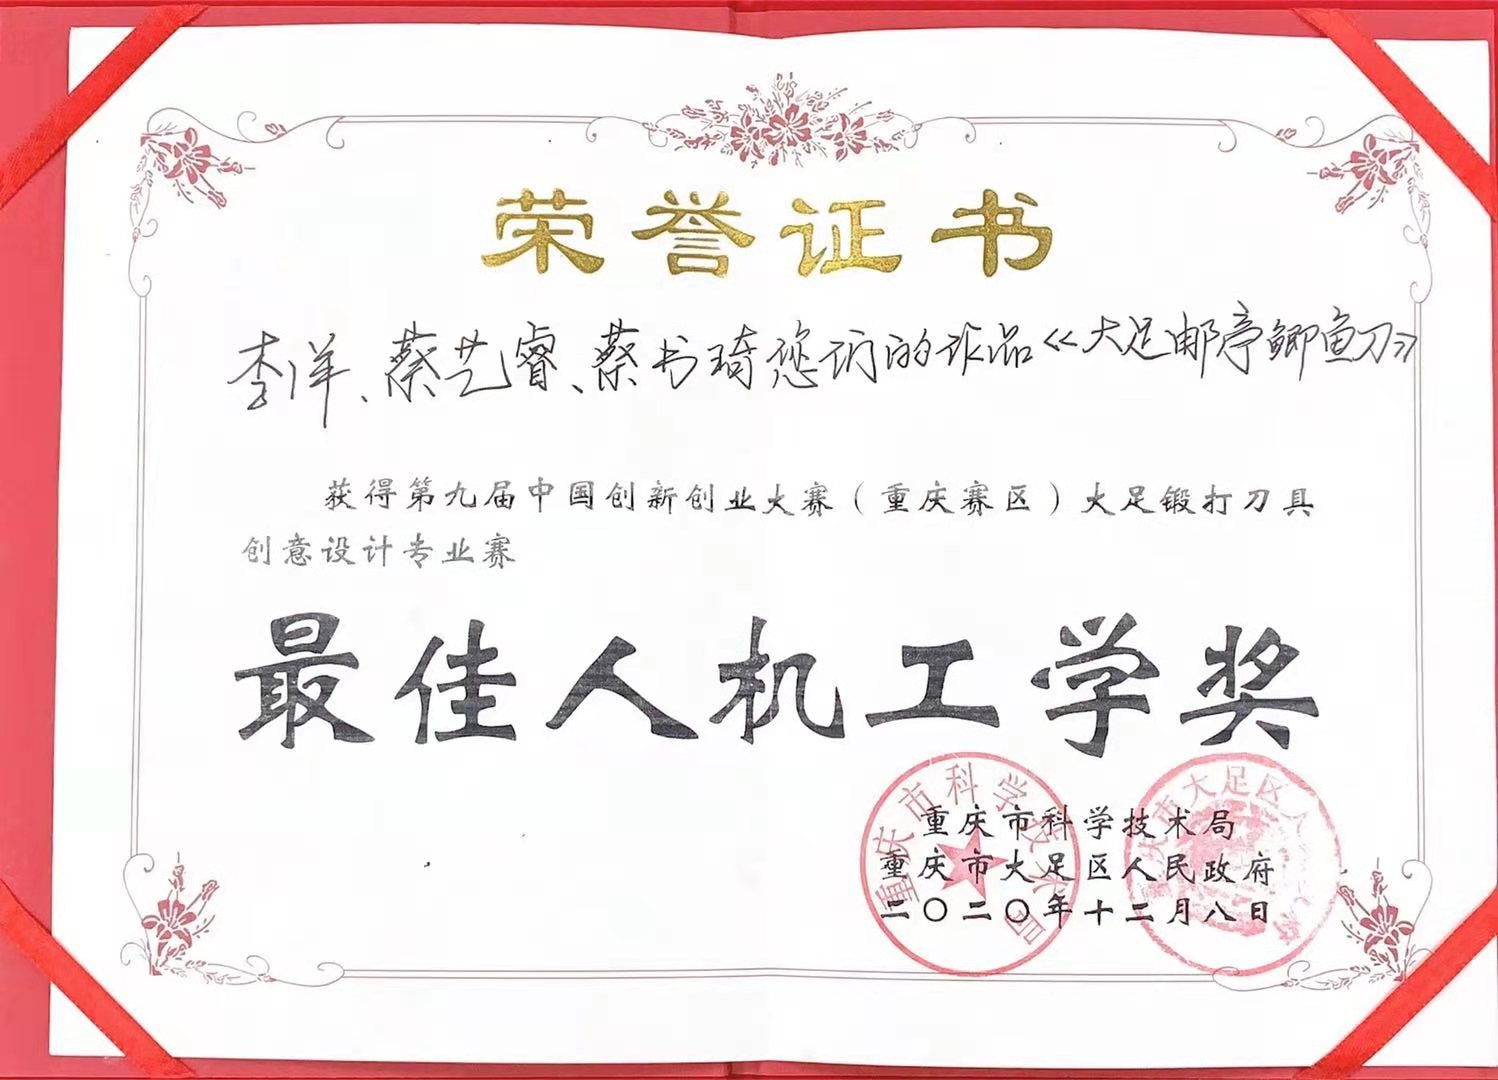 荣誉证书
李洋、蔡艺睿、蔡书琦您们的作品《大足邮亭鲫鱼刀》
获得第九届中国创新创业大赛（重庆赛区）大足锻打刀具
创意设计专业赛
最佳人机工学奖
重庆市科学技术局
重庆市大足区人民政府
二〇二〇年十二月八日
重庆市科学技术局
市大足区人